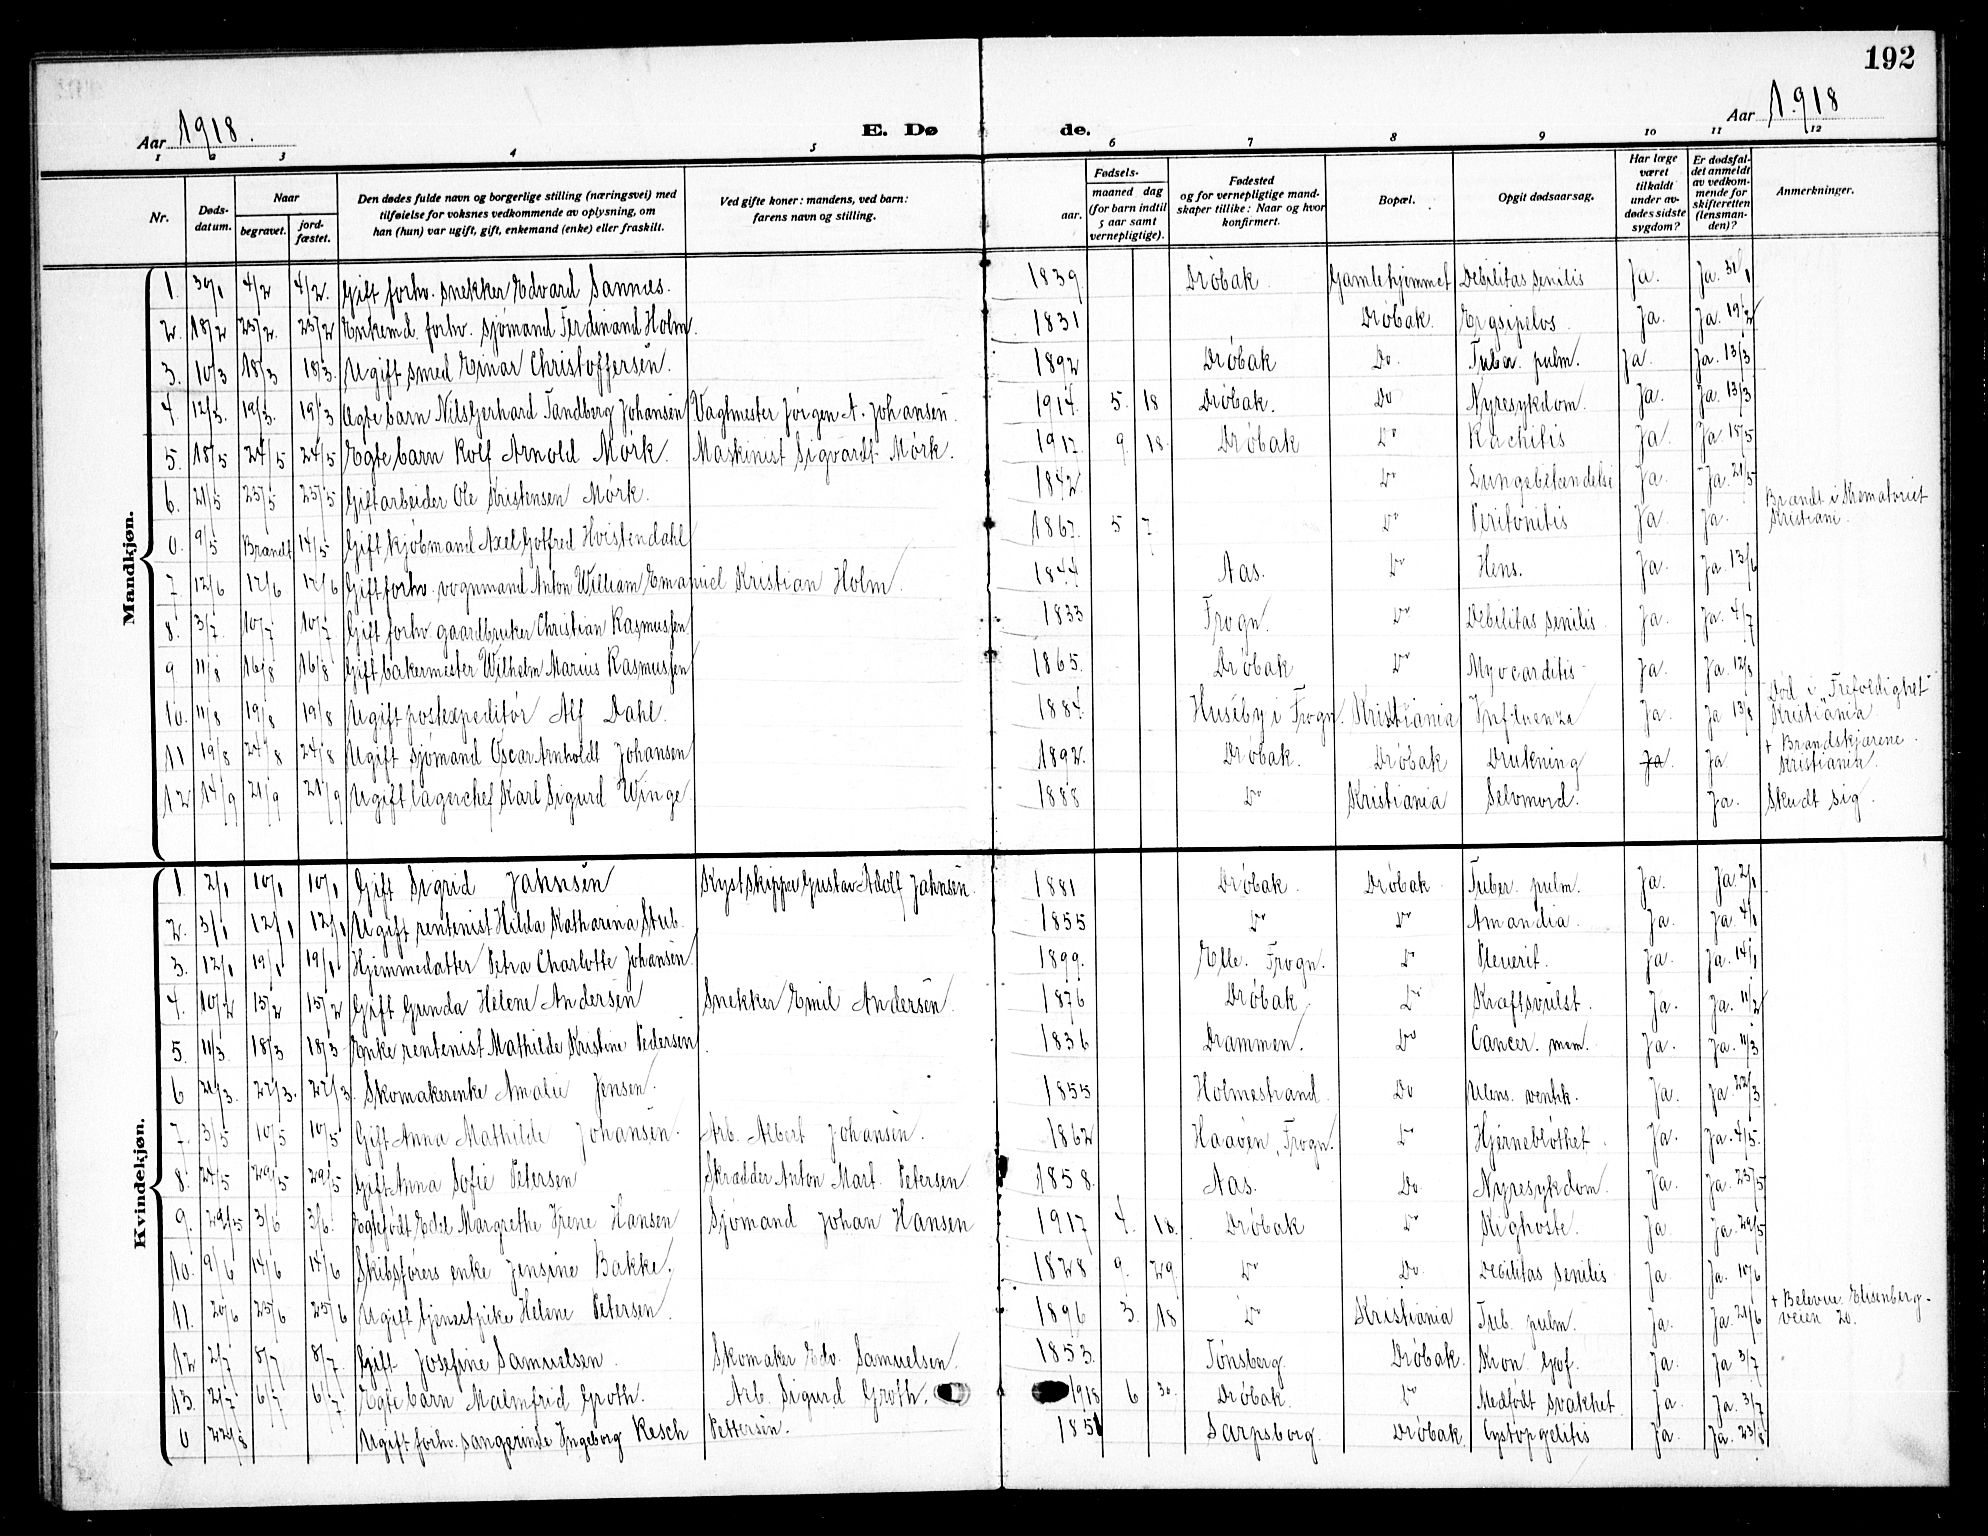 192
Aar 1918. E. Dø de. Aar 1918
1 2 3 4 5 6 7 8 9 10 11 12
Nr. Døds-datum. Naar begravet. jord-fæstet. Den dødes fulde navn og borgerlige stilling (næringsvei) med tilføielse for voksnes vedkommende av oplysning, om han (hun) var ugift, gift, enkemand (enke) eller fraskilt. Ved gifte koner: mandens, ved barn: farens navn og stilling. Fødsels- aar. maaned dag (for barn indtil 5 aar samt vernepligtige). Fødested og for vernepligtige mandskaper tillike: Naar og hvor konfirmert. Bopæl. Opgit dødsaarsag. Har læge været tilkaldt under avdødes sidste sygdom? Er dødsfaldet anmeldt av vedkommende for skifteretten (lensmanden)? Anmerkninger.
Mandkjøn.
1. 30/1 4/2 4/2. Gift forhv. snekker Edvard Sannæs. 1839. Drøbak. Gamlehjemmet Debilitas senilis Ja. Ja. 31/1
2. 18/2 25/2. 25/2 Enkemd. forhv. sjømand Ferdinand Holm. 1831 Drøbak. Ergsipelos. Ja. Ja. 19/2
3. 10/3 18/3 18/3. Ugift smed Einar Christoffersen. 1892 Drøbak Do. Tuber. pulm. Ja. Ja. 13/3
4. 12/3. 19/3. 19/3 Ægte barn Nils Gerhard Tandberg Johansen Vagtmester Jørgen A. Johansen. 1914. 5. 18 Drøbak. Do Nyresykdom. Ja. Ja. 13/3
5. 18/5 24/5 24/5 Egte barn Rolf Arnold Mørk. Maskinist Sigvardt Mørk. 1917. 9. 18. Drøbak Do Rachitis Ja. Ja 18/5
6. 21/5 25/5 25/5 Gift arbeider Ole Kristensen Mørk. 1842. Do Lungebetændelse Ja. Ja. 21/5
0. 9/5 Brandt 14/5 Gift kjøbmand Axel Gotfred Hvistendahl 1867. 5 7 Do Peritonitis Ja. Ja. Brændt i Krematoriet Kristiani.
7 12/6 17/6 17/6 Gift forhv. vognmand Anton William Emanuel Kristian Holm. 1844. Aas. Do Hens. Ja. Ja. 13/6
8. 3/7. 10/7 10/7 Gift forhv gaardbruker Christian Rasmussen 1833 Frogn. Do Debilitas senilis. Ja. Ja. 4/7
9 11/8 16/8 16/8 Gift bakermester Wilhelm Marius Rasmussen 1865. Drøbak Do Myocarditis Ja. Ja. 12/8
10. 11/8 19/8 19/8 Ugift postexpeditør Alf Dahl. 1884. Huseby i Frogn. Kristiania Influenza Ja. Ja 13/8 Død i "Trefoldighet" Kristiania
11 19/8 24/8 24/8 Ugift sjømand Oscar Arnholdt Johansen 1892. Drøbak. Drøbak Drukning Ja. Ja + Brandskjærene. Kristiania.
12 14/9 21/9 21/9 Ugift lagerchef Karl Sigurd Winge. 1888 Do Kristiania Selvmord. Ja. Skudt sig.
Kvindekjøn.
1. 2/1 10/1 10/1 Gift Sigrid Jahnsen Kystskipper Gustav Adolf Jahnsen. 1881 Drøbak. Drøbak. Tuber. pulm. Ja. Ja. 2/1
2. 3/1 12/1 12/1 Ugift rentenist Hilda Katharina Stub. 1855 Do Do Amandia. Ja. Ja. 4/1
3. 12/1 19/1 19/1 Hjemmedatter Petra Charlotte Johansen. 1899. Elle. Frogn. Do Pleuerit. Ja. Ja. 14/1
4. 10/2 15/2 15/2 Gift Gunda Helene Andersen Snekker Emil Andersen. 1876 Drøbak Do Kræftsvulst. Ja. Ja. 11/2
5. 11/3 18/3 18/3 Enke rentenist Mathilde Kristine Pedersen. 1836 Drammen. Do Cancer. mam. Ja. Ja. 11/3
6 21/3. 27/3. 27/3. Skomakerenke Amalie Jensen. 1855 Holmestrand. Do Ulens. ventk. Ja. Ja. 22/3
7. 3/5 10/5 10/5 Gift Anna Mathilde Johansen. Arb. Albert Johansen. 1862 Haaven, Frogn. Do Hjernebløthet. Ja. Ja. 4/5.
8. 24/5 29/5 29/5 Gift Anna Sofie Petersen Skrædder Anton Mart. Petersen. 1858. Aas. Do. Nyresykdom. Ja. Ja. 25/5
9. 29/5 3/6 3/6. Egtefødt Edel Margrethe Irene Hansen Sjømand Johan Hansen 1917 4. 18. Drøbak Do Kighoste. Ja. Ja. 29/5
10. 9/6 14/6 14/6 Skibsførers enke Jensine Bakke. 1828 9. 29. Do Do. Debilitas senilis Ja. Ja. 10/6
11. 20/6 25/6 25/6 Ugift tjenestpike Helene Petersen. 1896 3. 18 Do Kristiania Tub. pulm. Ja. Ja. 21/6 + Belevue Elisenberg-veien 20.
12 2/7 8/7 8/7. Gift Josefine Samuelsen. Skomaker Edv. Samuelsen. 1853. Tønsberg. Drøbak. Kron. Ja. Ja 3/7
13. 2/7 6/7 6/7. Egte barn Malmfrid Groth. Arb. Sigurd Groth. 1918 6 30. Drøbak. Do Medfødt svakhet. Ja. Ja. 3/7
0 22/8 Ugift forhv. sangerinde Ingeborg Resch Pettersen. 1851 Sarpsborg. Drøbak. Cystopyelitis Ja. Ja. 23/8